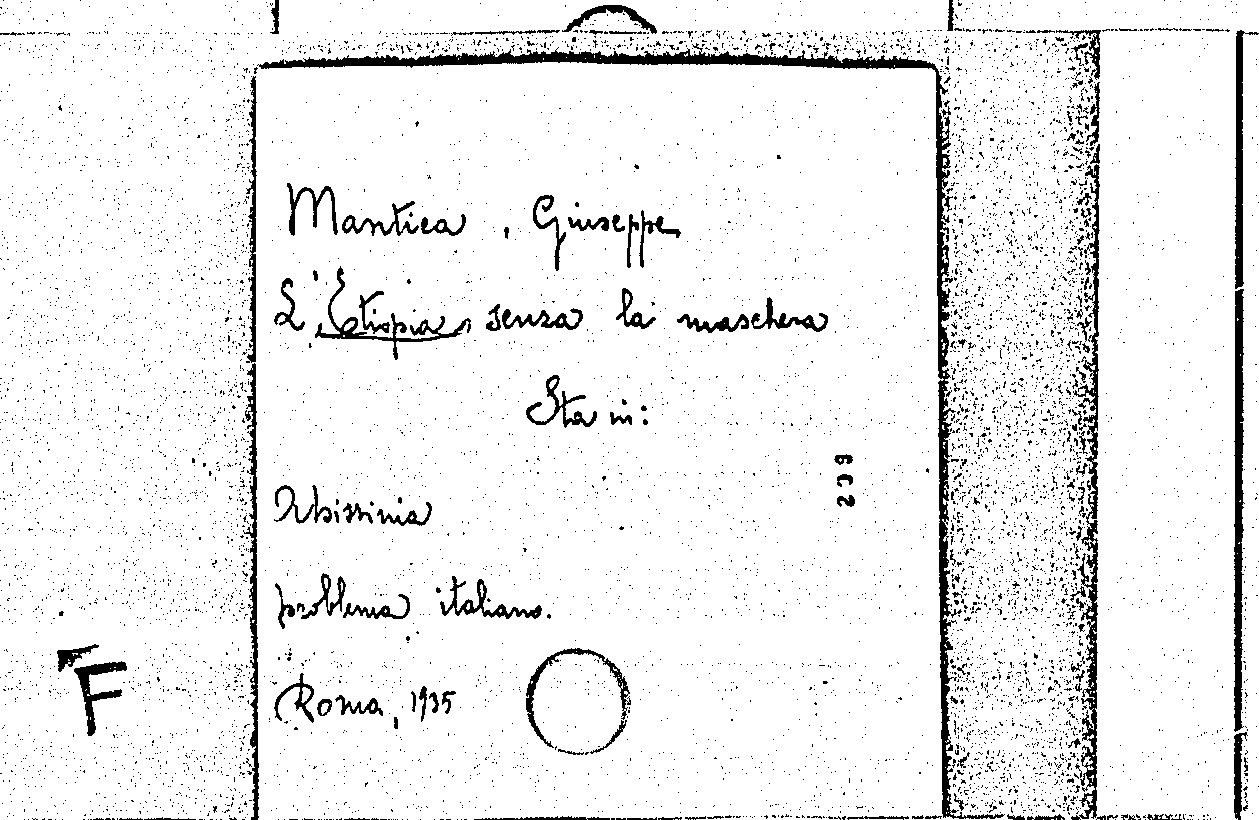 Mantica, Giuseppe
L'Etiopia senza la maschera
Sta in:
Abissinia
problema italiano.
Roma, 1935
239
F